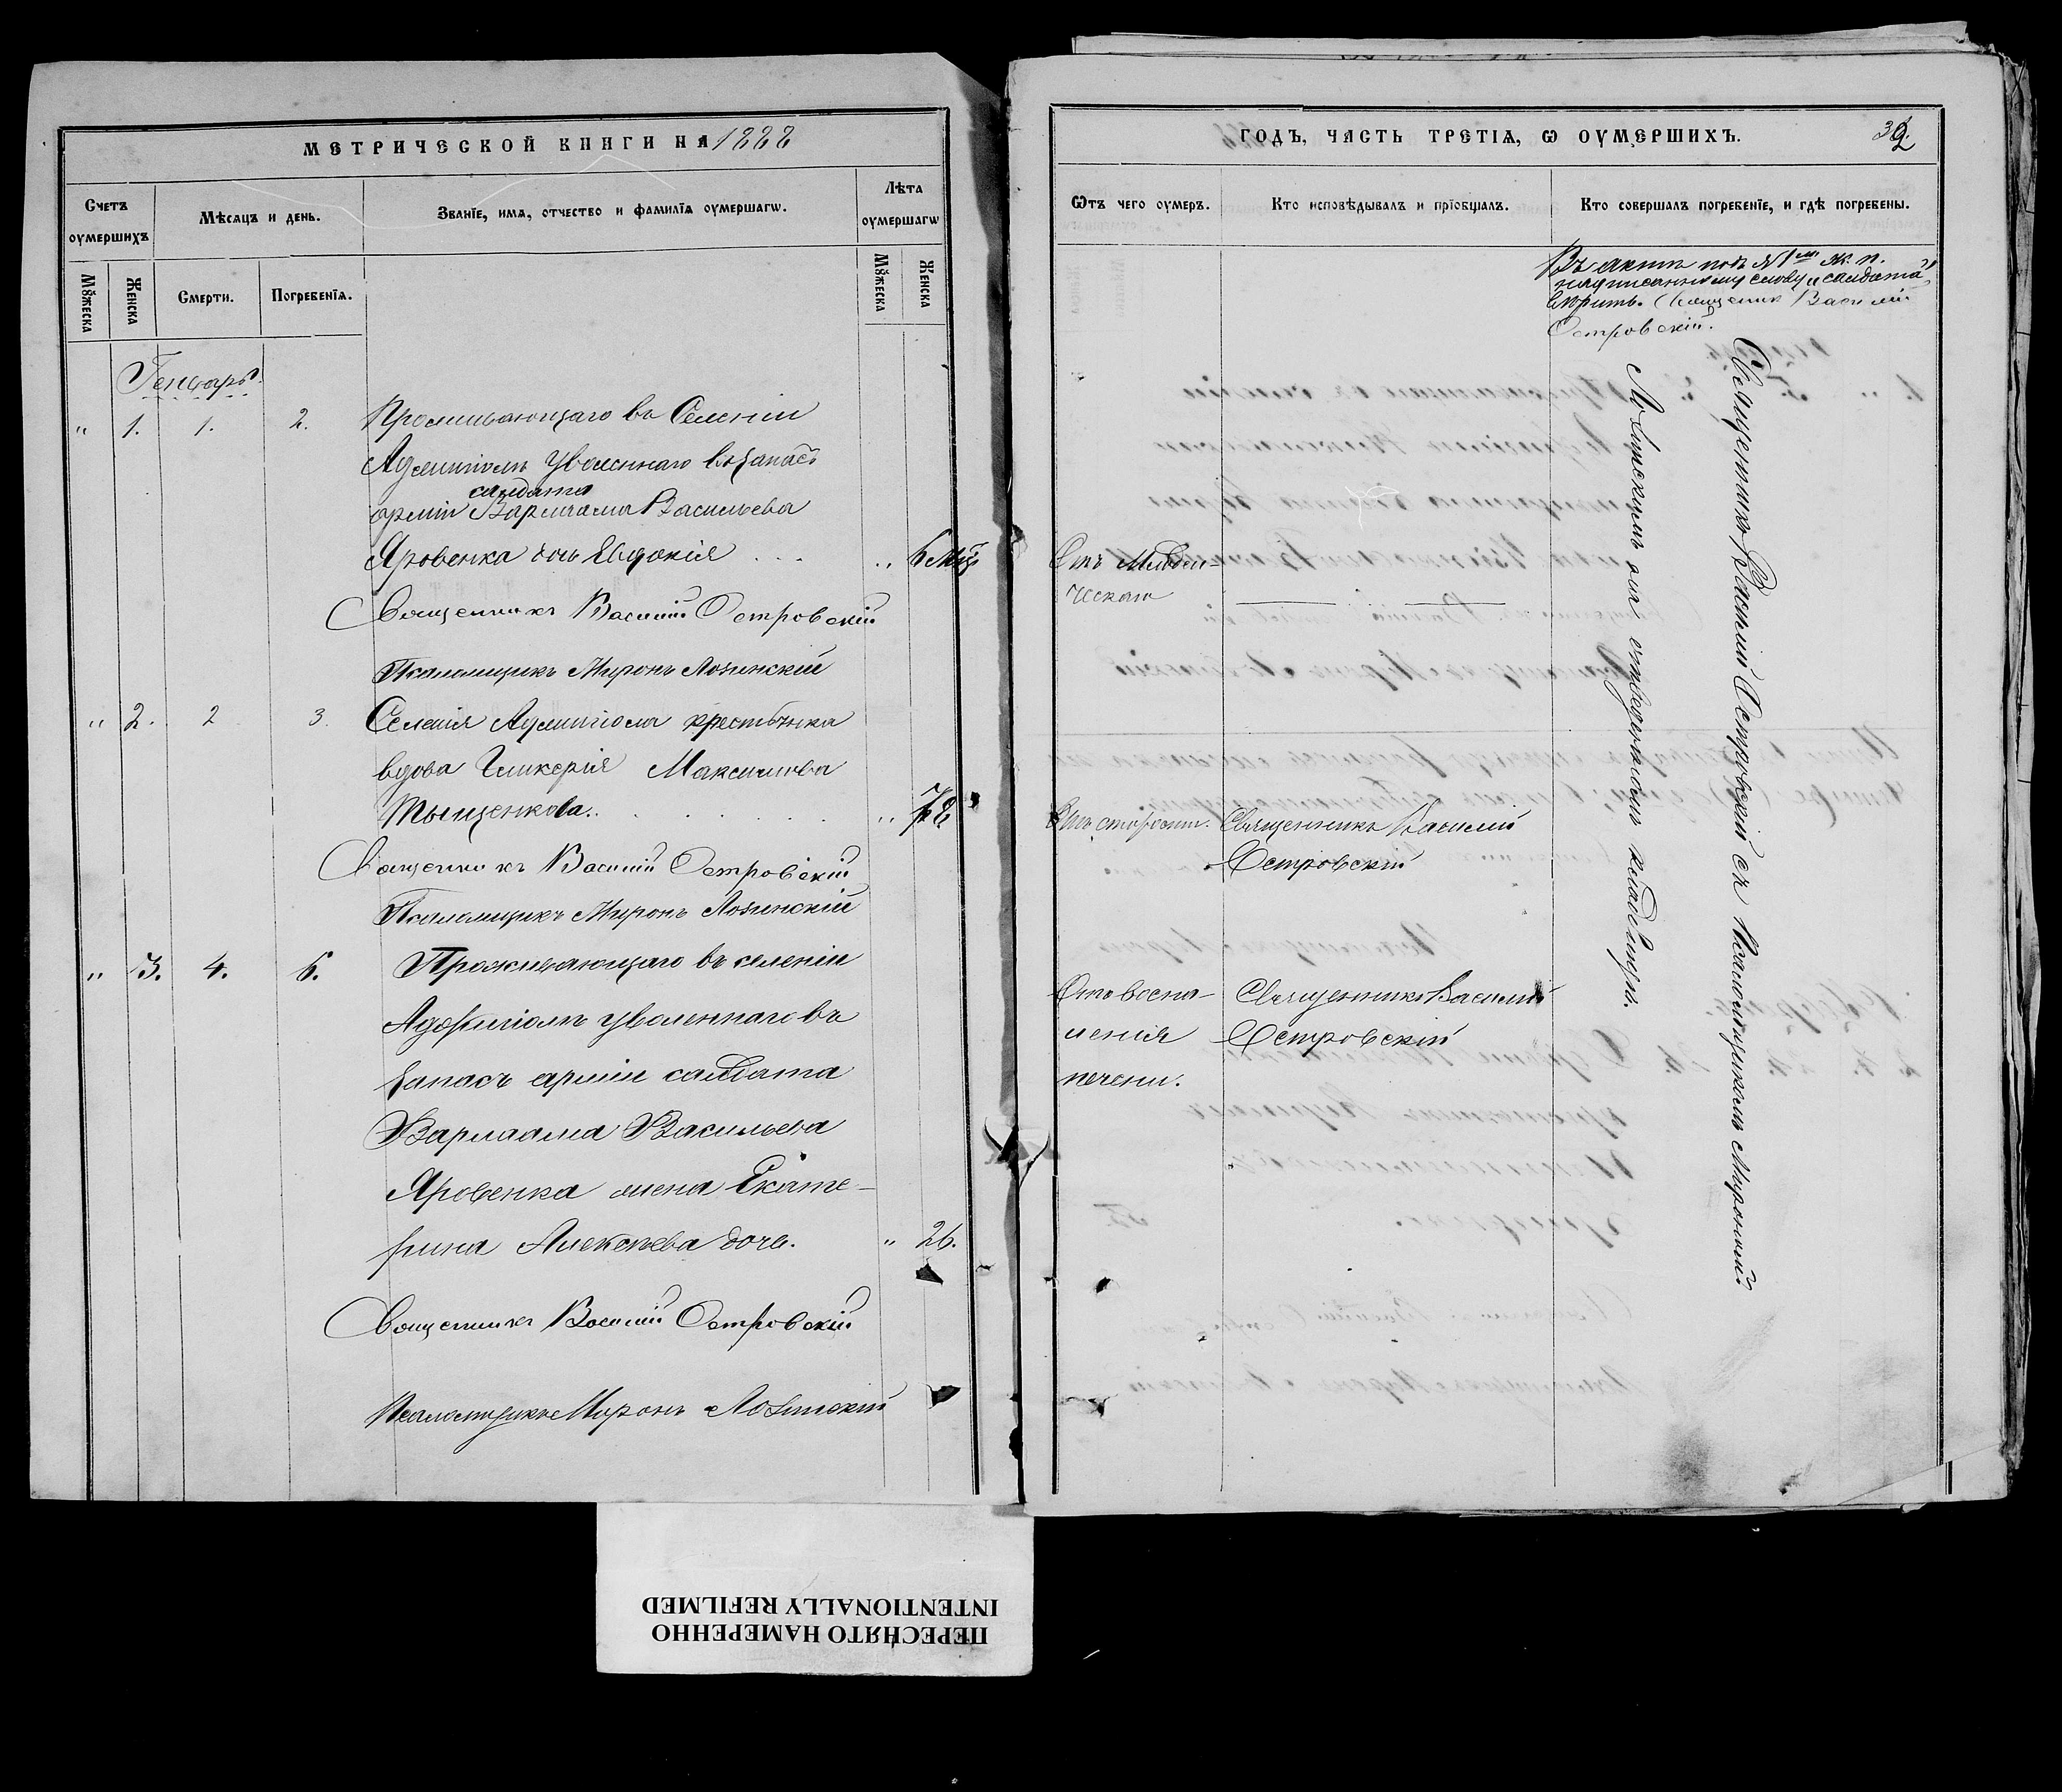 МЕТРИЧЕСКОЙ КНИГИ НА 1888
Счетъ оумершихъ
Мѣсяцъ и день.
Званїе, имѧ, отчество и фамилїѧ оумершагѡ.
Лѣта оумершагѡ
Мꙋжеска
Женска
Смерти.
Погребенїѧ.
Мꙋжеска
Женска
Генварь.
" 1. 1. 2. Проживающаго въ Селеніи
уволеннаго въ запасъ
солдата
арміи Варлаама Васильева
Яровенка дочь Евдокія . . . " 6 Мц
Священникъ Василій Островскій
Псаломщикъ Миронъ Лозинскій
" 2. 2 3. Селенія крестьянка
вдова Гликерія Максимова
Тыщенкова. . . . . " 78
Священникъ Василій Островскій
Псаломщикъ Миронъ Лозинскій
" 3. 4. 6. Проживающаго въ селеніи
уволеннаго въ
запасъ арміи солдата
Варлаама Васильева
Яровенка жена Екате-
рина Алексѣева дочь. " 26.
Священникъ Василій Островскій
Псаломщикъ Миронъ Лозинскій
ГОДЪ, ЧАСТЬ ТРЕТІѦ, Ѡ ОУМЕРШИХЪ.
Ѿтъ чего оумеръ.
Кто исповѣдывалъ и прїобщалъ.
Кто совершалъ погребенїе, и гдѣ погребены.
Въ актѣ подъ №1мъ ж. п.
надписанному слову "солдата"
вѣрить. Священник Василій
Островскій.
Отъ Младен-
ческаго
Отъ старости. Священникъ Василій
Островскій
Отъ воспа- Священникъ Василій
ленія Островскій
печени.
Священникъ Василій Островскій съ Псаломщикомъ Мирономъ
Лозинскимъ на отведенномъ кладбищѣ.
ПЕРЕСНЯТО НАМЕРЕННО
INTENTIONALLY REFILMED